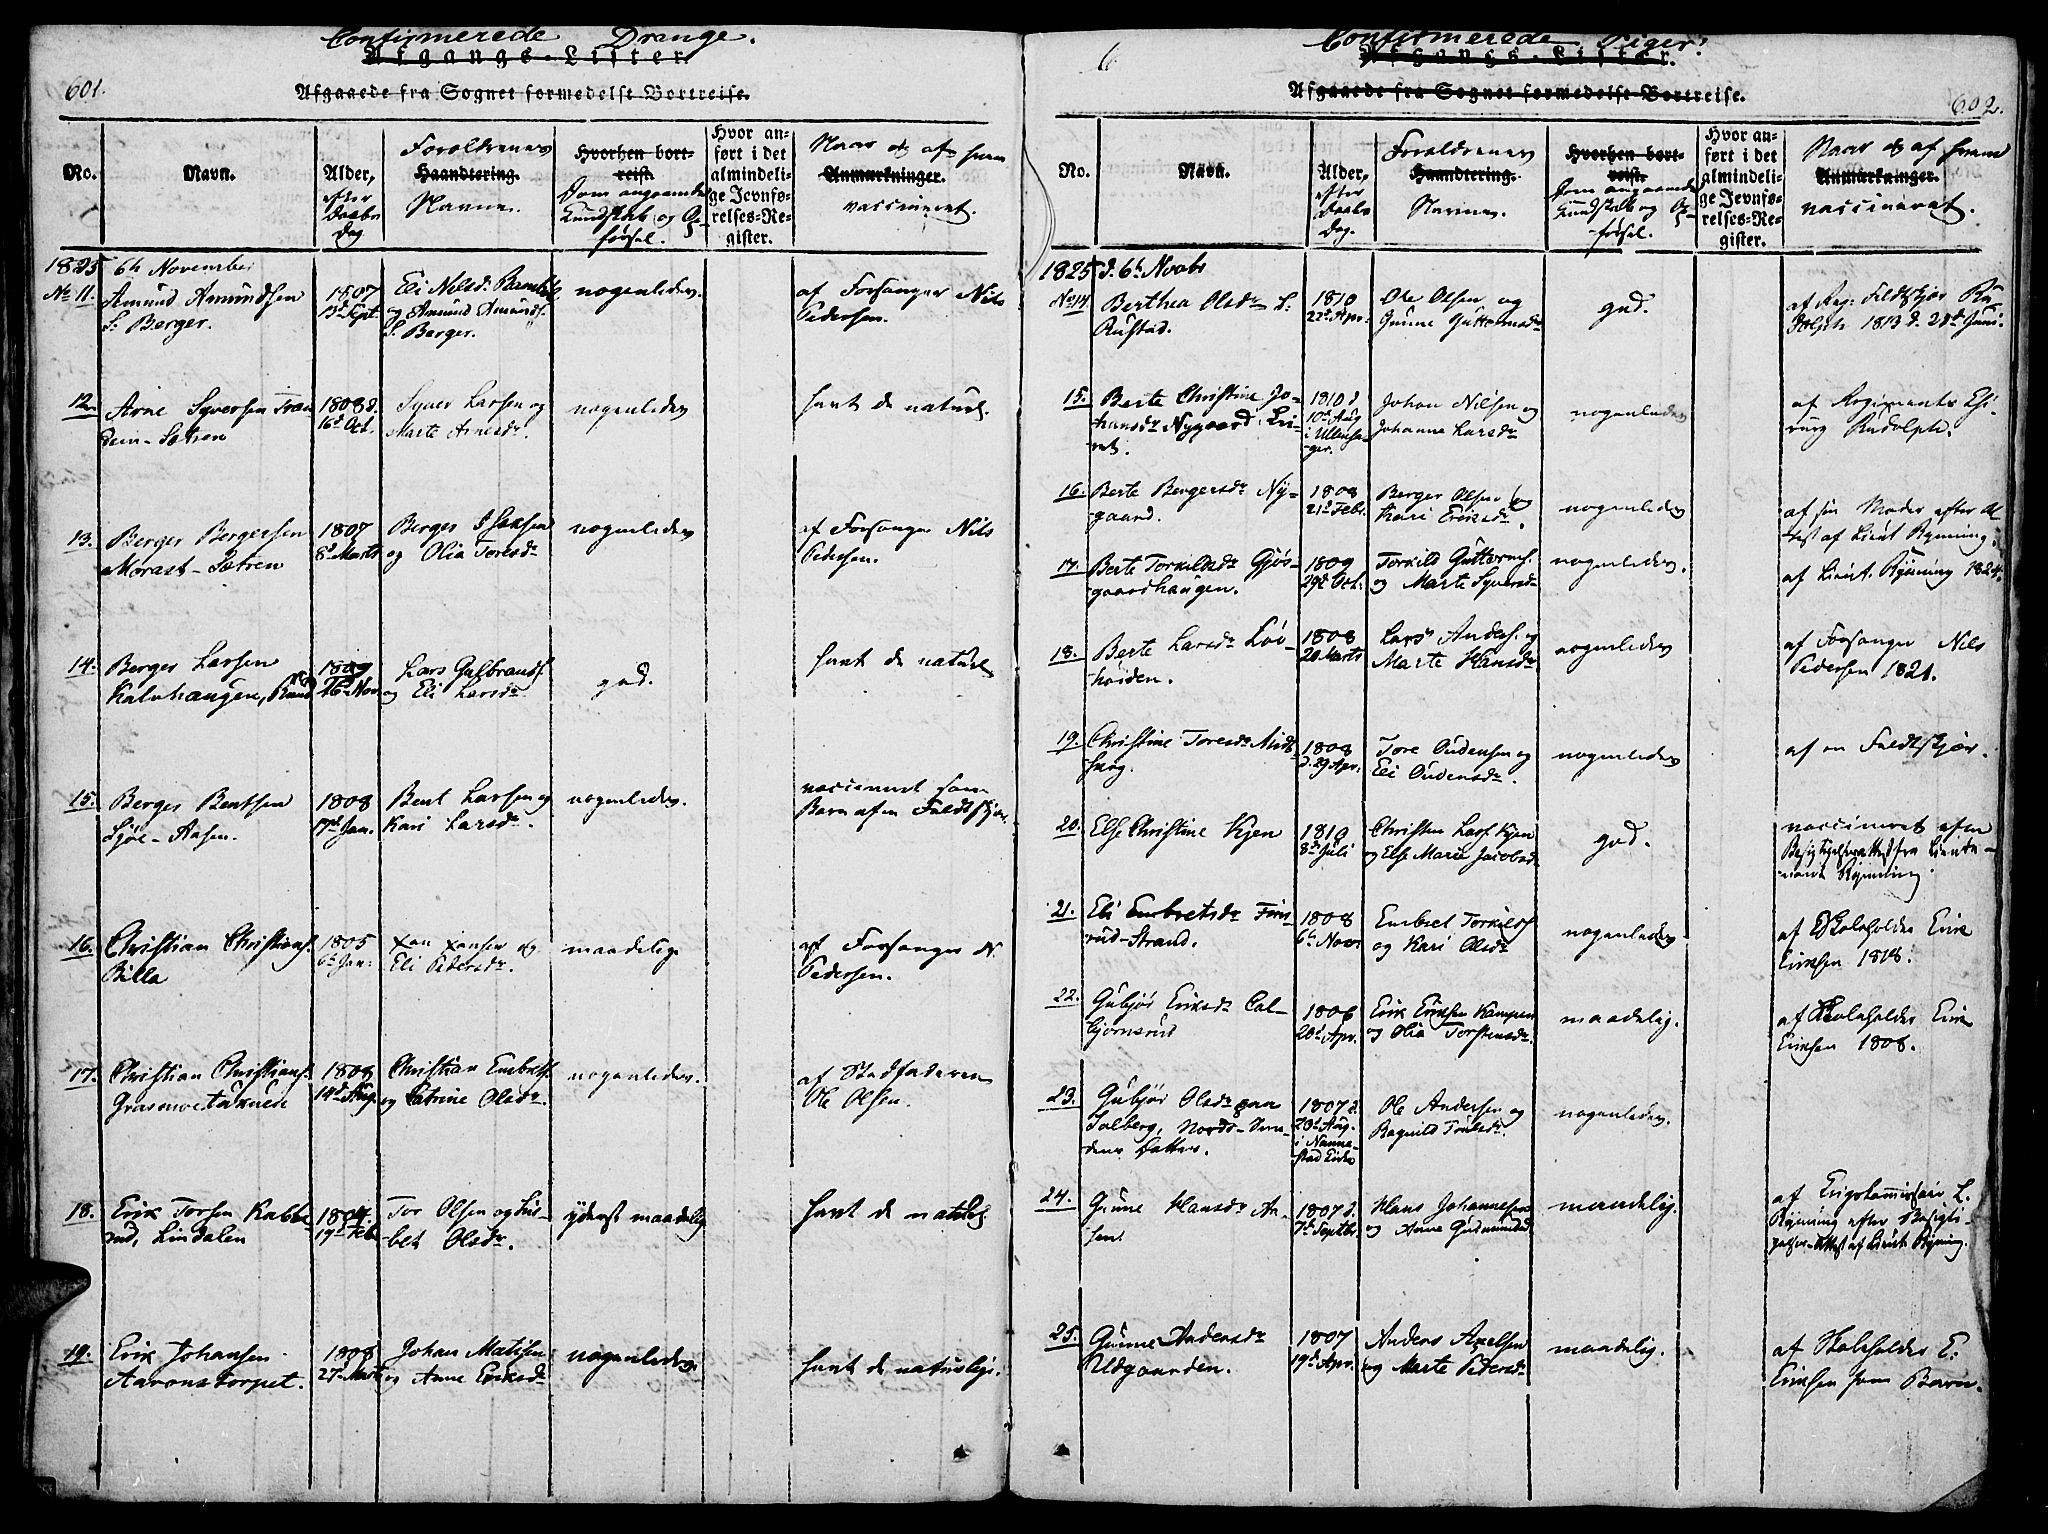 Confirmerede Drenge.
Afgangs-Lister.
601.
Afgaaede fra Sognet formedelst Bortreise.
No.
Navn.
Alder,
efter
Daabs
Dag
Forældrenes
Haandtering.
Navne.
Hvorhen bort-
reist.
Dom angaaende
Kundskab og Op-
førsel.
Hvor an-
ført i det
almindeli-
ge Jevnfø-
relses-Re-
gister.
Naar og af hvem
Anmærkninger.
vaccineret.
1825 6te November
No 11.
Amund Amundsen
Berger.
1807
13d Sept.
Eli Nilsd.
og Amund Amunds.
Berger.
nogenledes.
af Forsanger Nils
Pedersen.
12.
Arne Syversen
Sætren
1808 d.
16d Oct.
Syver Larsen og
Marte Arnesdr.
nogenledes
havt de naturl.
13.
Berger Bergersen
Morast-Sætren
1807
8d Marts
Berger Isaksen
og Olia Toresdr
nogenledes
af Forsanger Nils
Pedersen.
14.
Berger Larsen
Kalvhaugen,
1809
26d Nov
Lars Gulbrands.
og Eli Larsdr
god.
havt de naturl
15.
Berger Bentsen
Sjøl-Aasen.
1808
17d Jan.
Bent Larsen og
Kari Larsdr.
nogenledes.
vaccineret som
Barn af en Feldtskjær
16.
Christian Christians.
Billa
1805
6te Jan.
og
Eli Pedersdr.
maadelig
af Forsanger N.
Pedersen.
17.
Christian Christians.
1808
14d Aug.
Christian Embrets.
og Catrine Olsdr.
nogenledes.
af Stadfaderen
Ole Olsen.
18.
Erik Torsen Kabbe-
rud, Lindalen
1804
19d Feb
Tor Olsen og Lis-
bet Olsdr.
yderst maadelig
havt de naturl.
19.
Erik Johansen
Aaronstorpet.
1808
27d Marts
Johan Matisen
og Anne Eriksdr
nogenledes
havt de naturlige.
6
Confirmerede Piger.
Afgangs-Lister.
Afgaaede fra Sognet formedelst Bortreise.
602.
No.
Navn.
Alder,
efter
Daabs
Dag.
Forældrenes
Haandtering.
Navne.
Hvorhen bort-
reist.
Dom angaaende
Kundskab og Op-
førsel.
Hvor an-
ført i det
almindeli-
ge Jevnfø-
relses-Re-
gister.
Naar og af hvem
Anmærkninger.
vaccineret.
1825 d. 6te Novbr
No 14
Berthea Olsdr L.
Rustad.
1810
22d Apr.
Ole Olsen og
Gunne Guttormsdr
god.
af Reg: Feldtskjær Ru-
dolph 1813 d. 28d Juni.
15.
Berte Christine Jo-
hansdr Nygaard, Ei-
ret.
1810 d
10d Aug
i Ullensa-
ger.
Johan Nilsen og
Johanne Larsdr
nogenledes
af Regiments Chi-
rurg Rudolph.
16.
Berte Bergersdr Ny-
gaard.
1808
21d Febr.
Berger Olsen og
Kari Eriksdr.
nogenledes
af sin Moder efter At-
test af Lieut Rynning.
17.
Berte Torkildsdr Gjøs-
gaardhaugen.
1809
29d Oct.
Torkild Guttorms.
og Marte Syversdr
nogenledes.
af Lieut. Rynning 1824.
18.
Berte Larsdr Løv-
høiden.
1808
20 Marts
Lars Anders. og
Marte Hansdr
nogenledes
af Forsanger Nils
Pedersen 1821.
19.
Christine Toresdr Midt-
skog.
1808
d. 29 Apr.
Tore Oudensen og
Eli Oudensdr.
nogenledes
af en Feldtskjær.
20.
Else Christine Kjen
1810
8d Juli
Christen Lars. Kjen
og Else Marie Jacobsd
god.
vaccineret efter
Besigtigelsesattest fra Lieute-
nant Rynning.
21.
Eli Embretsdr Furu-
rud-Strand.
1808
6te Novr
Embret Torkilds.
og Kari Olsdr
nogenledes
af Skoleholder Erik
Eriksen 1818.
22.
Gubjør Eriksdr Cal-
bjørnsrud
1806
20d Apr.
Erik Eriksen Kampen
og Olia Torstensdr.
maadelig.
af Skoleholder Erik
Eriksen 1808.
23.
Gubjør Olsdr paa
Solberg,
Datter.
1807 d.
20d Aug.
i Nanne-
stad
Ole Andersen og
Ragnild
nogenledes.
24.
Gunne Hansdr Aa-
sen.
1807 d.
7d Septbr
Hans Johannesen
og Anne Gudmundsd
maadelig.
af Krigskommissair L.
Rynning efter Besigti-
gelses-Attest af Lieut Rynning.
25.
Gunne Andersdr
Udgaarden.
1807
19d Apr.
Anders Axelsen
og Marte Pedersdr
maadelig.
af Skoleholder E.
Eriksen som Barn.